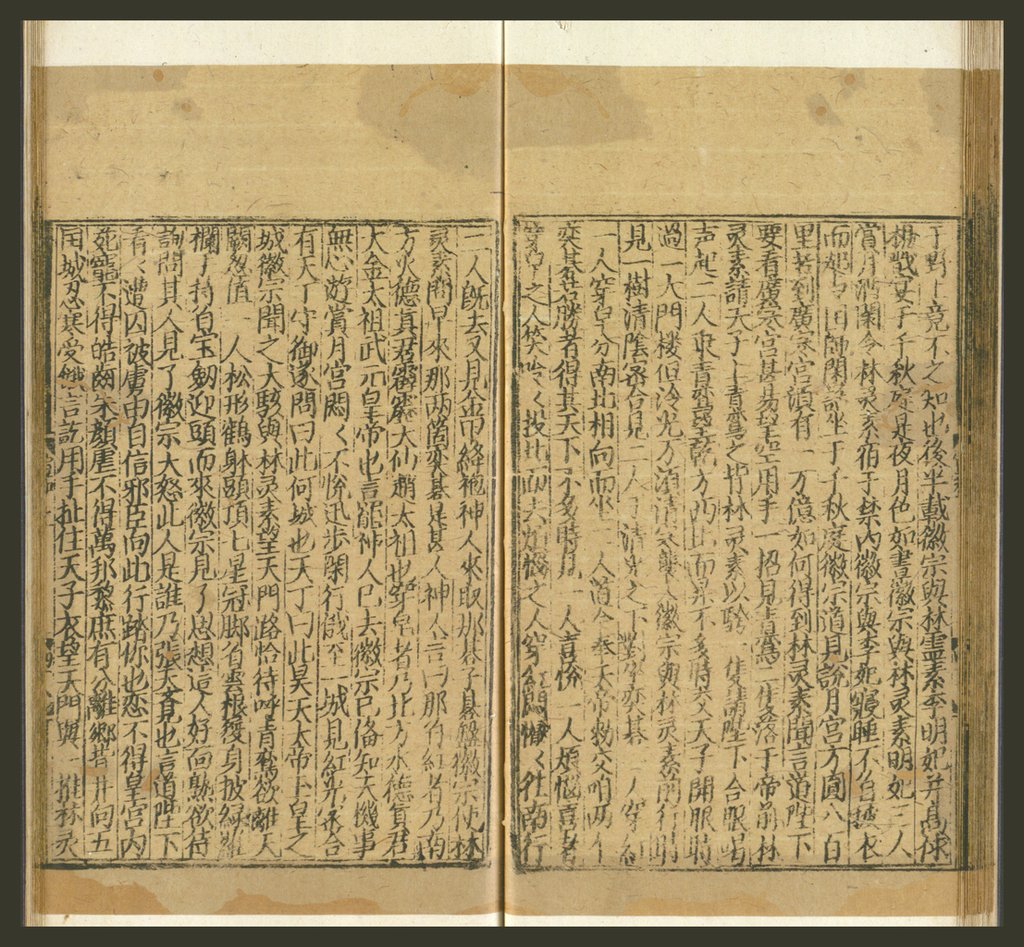 于野竟不之知也後半載徽宗與林霊素李明妃并高俅
楊戩宴于千秋庭是夜月色如晝徽宗與林灵素明妃三人
賞月酒闌令林灵素宿于禁内徽宗與李妃寝睡不着披衣
而起与国師閑話坐于千秋庭徽宗道見說月宫方圓八百
里若到廣寒宫湏有一万億如何得到林灵素聞言道陛下
要看廣寒宫甚易望空用手一招見青鸞一隻落于帝前林
灵素請天子上青鸞之背林灵素以跨一隻請陛下合眼喝
声起二人乗青鸞望乾方乃此而昇不多時交天子開眼時
過一大門楼但冷光万湏清寒襲人徽宗與林灵素前行時
見一樹清陰密合見二人于清光之下對坐奕棋一人穿紅
一人穿皂分南北相向而坐二人道今奉天帝勑交咱两个
奕棊若勝者得其天下不多時見一人喜悦一人煩惱喜者
穿皂之人笑吟く投北而去煩惱之人穿紅悶懨く往南行
二人既去又見金甲絳袍神人來取那碁子碁盤徽宗使林
灵素問曰來那两箇奕碁是甚人神人言曰那着紅者乃南
方火德真君霹靂大仙趙太祖也穿皂者乃北方水德真君
大金太祖武元皇帝也言罷神人已去徽宗已備知天機事
無心遊賞月宫悶く不悅迅步閑行戲至一城見紅光家合
有天丁守御遂問曰此何城也天丁曰此昊天太帝玉皇之
城徽宗聞之大駭與林灵素望天門路恰待呼青鸞欲離天
闕忽值一人松形鶴躰頭頂七星冠脚着雲根履身披緑羅
襴手持着宝劒迎頭而來徽宗見了思想這人好面熟欲待
詢問其人見了徽宗大怒此人是誰乃張天覺也言道陛下
看く遭囚被虜由自信邪臣向此行踏你也恋不得皇宫内
妃寵不得皓齒朱顔虐不得萬邦黎庶有分離鄉背井向五
国城忍寒受餓言訖用手扯住天子衣望天門與一推林灵